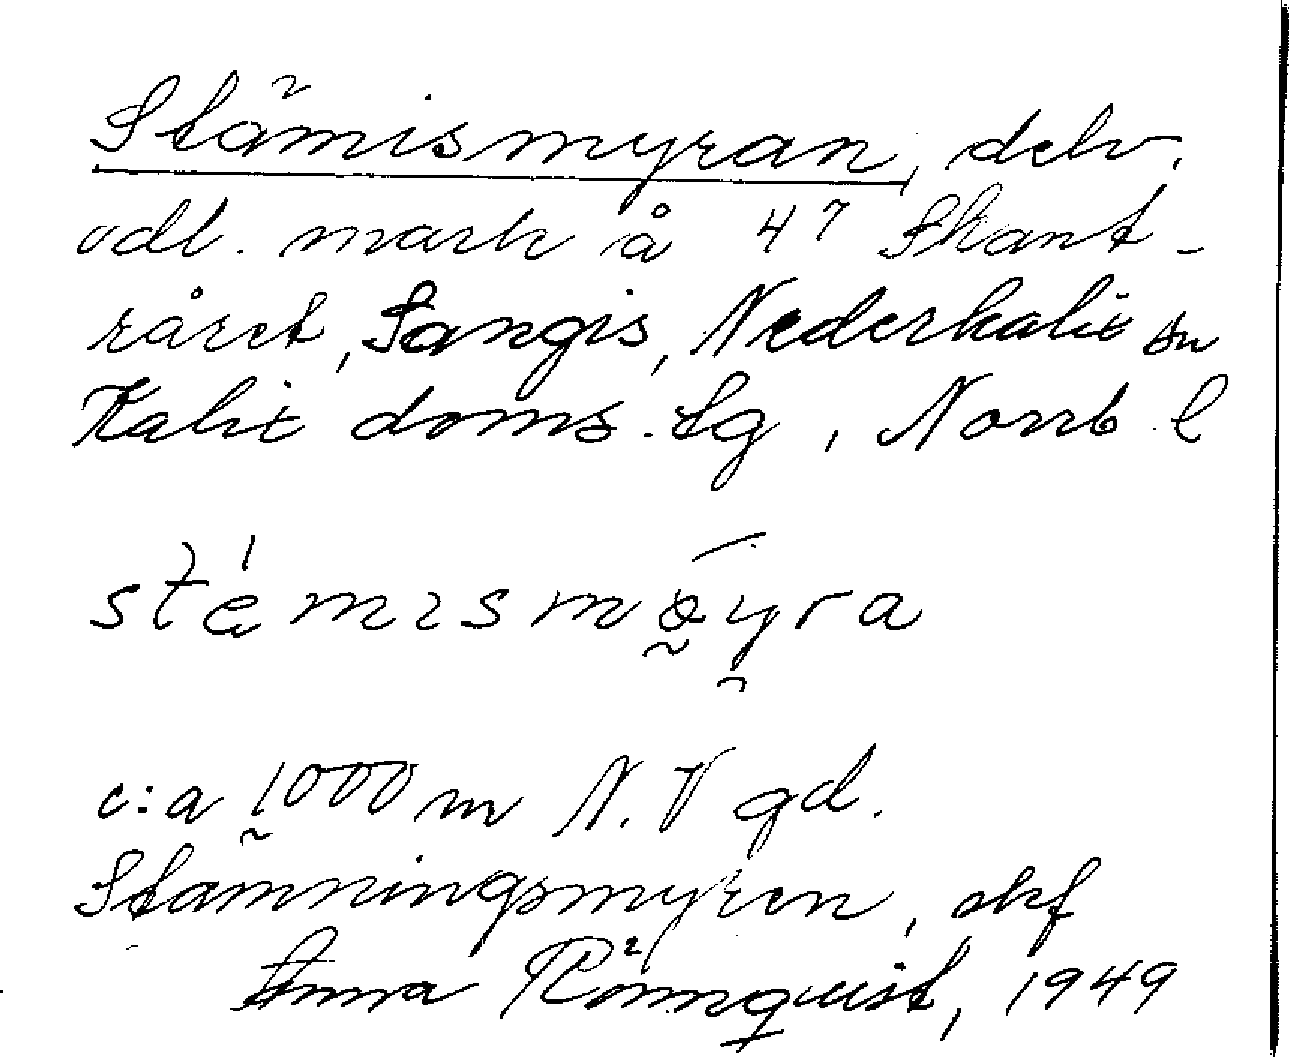 Stämismyran, delv.
odl. mark å 47 Skant-
råret, Sangis, Nederkalix sn
Kalix doms. lg, Norrb l
stämısmöyra
c:a 1000 m N.V gd.
Stämningsmyren, skf
Anna Rönnquist, 1949